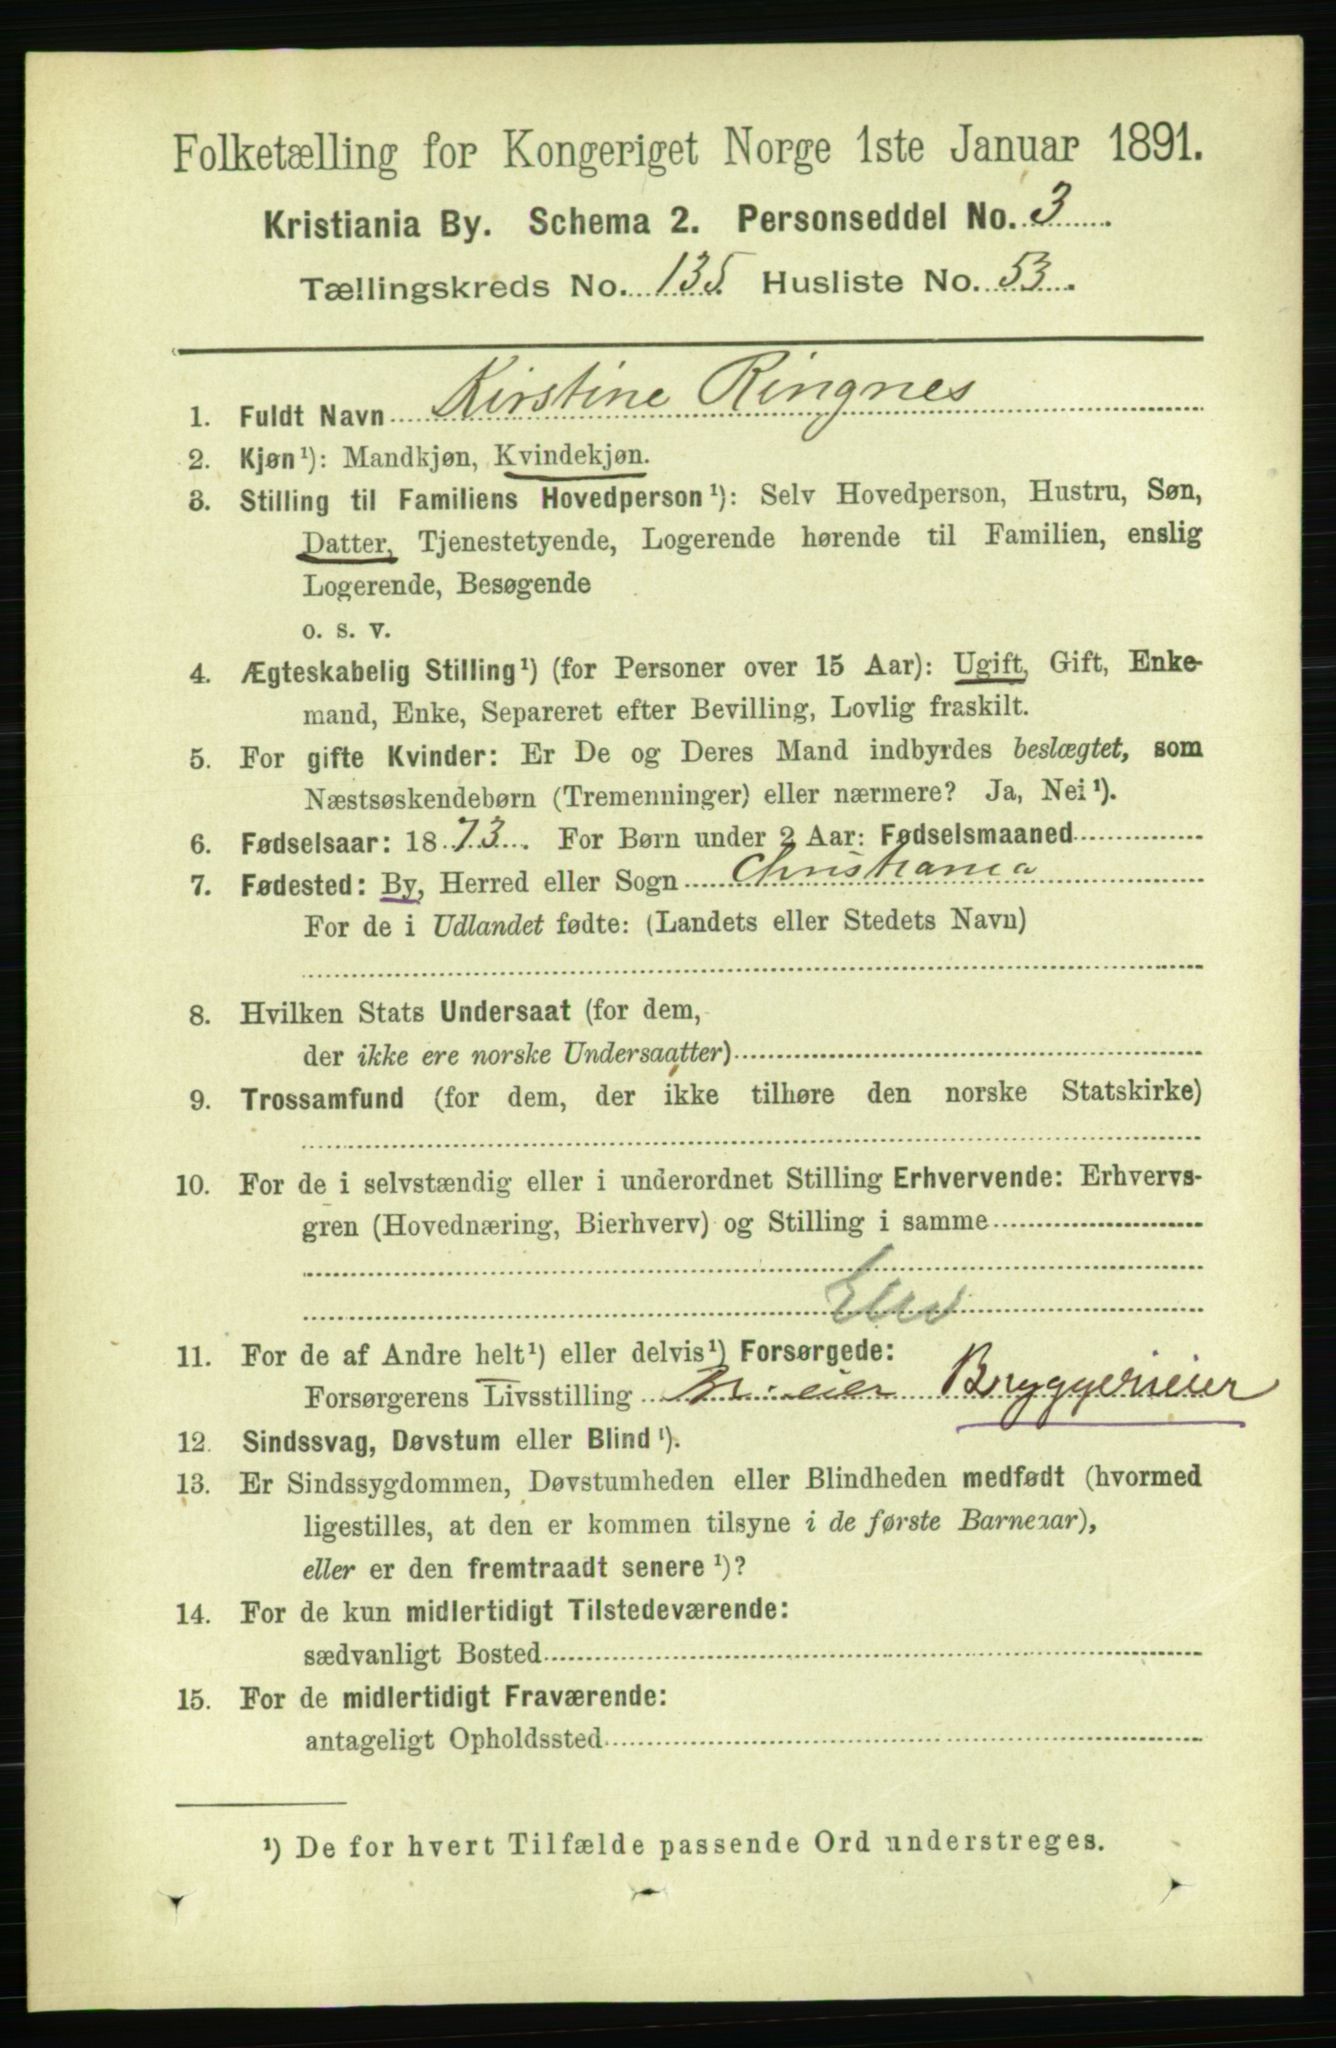 Folketælling for Kongeriget Norge 1ste Januar 1891.
Kristiania By. Schema 2. Personseddel No. 3
Tællingskreds No. 135 Husliste No. 53.
1. Fuldt Navn Kirstine Ringnes
2. Kjøn¹): Mandkjøn, Kvindekjøn.
3. Stilling til Familiens Hovedperson¹): Selv Hovedperson, Hustru, Søn,
Datter, Tjenestetyende, Logerende hørende til Familien, enslig
Logerende, Besøgende
o. s. v.
4. Ægteskabelig Stilling¹) (for Personer over 15 Aar): Ugift, Gift, Enke-
mand, Enke, Separeret efter Bevilling, Lovlig fraskilt.
5. For gifte Kvinder: Er De og Deres Mand indbyrdes beslægtet, som
Næstsøskendebørn (Tremenninger) eller nærmere? Ja, Nei¹).
6. Fødselsaar: 1873. For Børn under 2 Aar: Fødselsmaaned
7. Fødested: By, Herred eller Sogn Christiania
For de i Udlandet fødte: (Landets eller Stedets Navn)
8. Hvilken Stats Undersaat (for dem,
der ikke ere norske Undersaatter)
9. Trossamfund (for dem, der ikke tilhøre den norske Statskirke)
10. For de i selvstændig eller i underordnet Stilling Erhvervende: Erhvervs-
gren (Hovednæring, Bierhverv) og Stilling i samme
11. For de af Andre helt¹) eller delvis¹) Forsørgede:
Forsørgerens Livsstilling Bryggerieier
12. Sindssvag, Døvstum eller Blind¹).
13. Er Sindssygdommen, Døvstumheden eller Blindheden medfødt (hvormed
ligestilles, at den er kommen tilsyne i de første Barneaar),
eller er den fremtraadt senere¹)?
14. For de kun midlertidigt Tilstedeværende:
sædvanligt Bosted
15. For de midlertidigt Fraværende:
antageligt Opholdssted
¹) De for hvert Tilfælde passende Ord understreges.